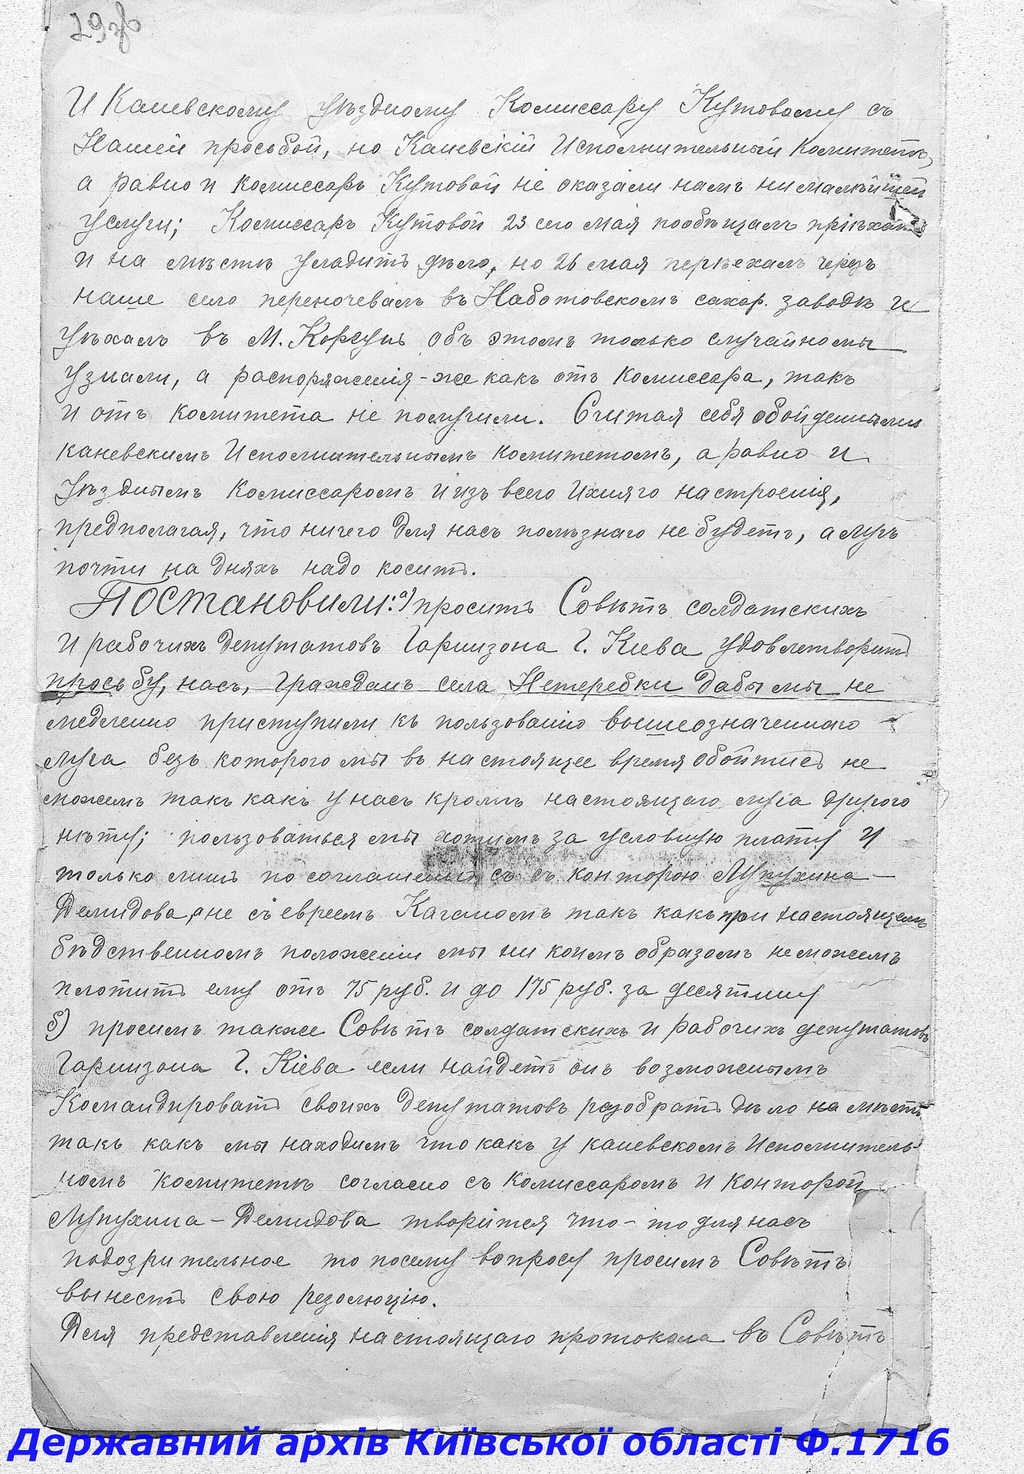 29 зв
И Каневскому уѣздному Комиссару Кутовому съ
Нашей просьбой, но Каневскій Исполнительный Комитетъ,
а равно и комиссаръ Кутовой не оказали намъ ни малѣйшей
услуги; Комиссаръ Кутовой 23 сего мая пообѣщалъ пріѣхать
и на мѣстѣ уладить дѣло, но 26 мая переѣхалъ черезъ
наше село переночевалъ въ Наботовскомъ сахар. заводѣ и
уѣхалъ въ М. Корсунь объ этомъ только случайно мы
узнали, а распоряженія-же какъ отъ комиссара, такъ
и отъ комитета не получили. Считая себя обойденными
каневскимъ Исполнительнымъ комитетомъ, а равно и
уѣзднымъ комиссаромъ и изъ всего ихняго настроенія,
предполагая, что ничего для насъ полѣзнаго не будетъ, а лугъ
почти на дняхъ надо косить.
Постановили: а) просить Совѣтъ солдатскихъ
и рабочихъ депутатовъ Гарнизона г. Кіева удовлетворить
просьбу, насъ, гражданъ села Нетеребки дабы мы не
медленно приступили къ пользованію вышеозначеннаго
луга безъ котораго мы въ настоящее время обойтись не
можемъ такъ какъ у насъ кромѣ настоящаго луга другого
нѣту; пользоваться мы хотимъ за условную плату и
только лишь по соглашенію съ съ конторою Лупухина-
Демидова, а не съ евреемъ Каганомъ такъ какъ при настоящемъ
бѣдственномъ положеніи мы ни коимъ образомъ не можемъ
плотить ему отъ 75 руб. и до 175 руб. за десятину
б) просимъ также Совѣтъ солдатскихъ и рабочихъ депутатовъ
Гарнизона г. Кіева если найдетъ онъ возможнымъ
Командировать своихъ депутатовъ разобрать дѣло на мѣстѣ
такъ какъ мы находимъ что какъ у каневскомъ Исполнитель-
номъ комитетѣ согласно съ комиссаромъ и конторой
Лупухина-Демидова творится что-то для насъ
подозрительное то посему вопросу просимъ Совѣтъ
вынесть свою резолюцію.
Для представленія настоящаго протокола въ Совѣтъ
Державний архів Київської області Ф.1716